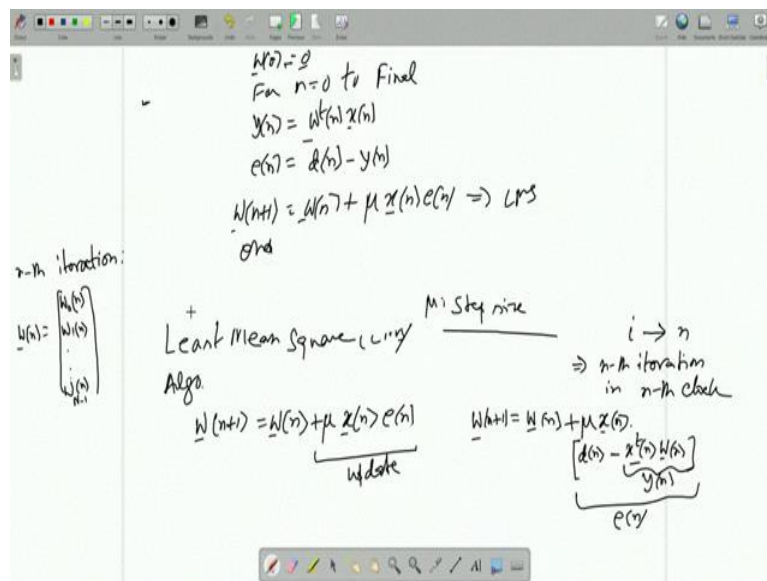 w(0) = 0
For n=0 to Final
y(n) = w^t(n) x(n)
e(n) = d(n) - y(n)
w(n+1) = w(n) + μ x(n) e(n) ⇒ LMS
end
n-th iteration:
w(n) = [w_0(n) w_1(n) : w_{N-1}(n)]
μ: Step size
Least Mean Square (LMS)
Algo.
i → n
⇒ n-th iteration
in n-th clock
w(n+1) = w(n) + μ x(n) e(n)
update
w(n+1) = w(n) + μ x(n).
[d(n) - x^t(n) w(n)]
y(n)
e(n)